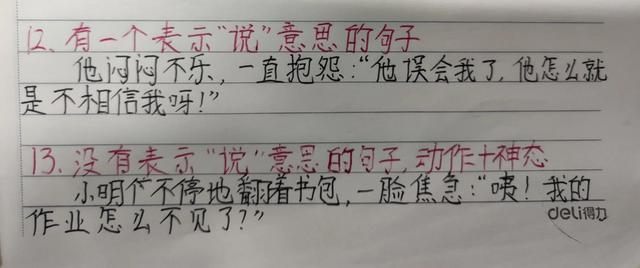 12、有一个表示“说”意思的句子
他闷闷不乐，一直抱怨：“他误会我了，他怎么就
是不相信我呀！”
13、没有表示“说”意思的句子，动作+神态
小明不停地翻着书包，一脸焦急：“咦！我的
作业怎么不见了？”
deli得力